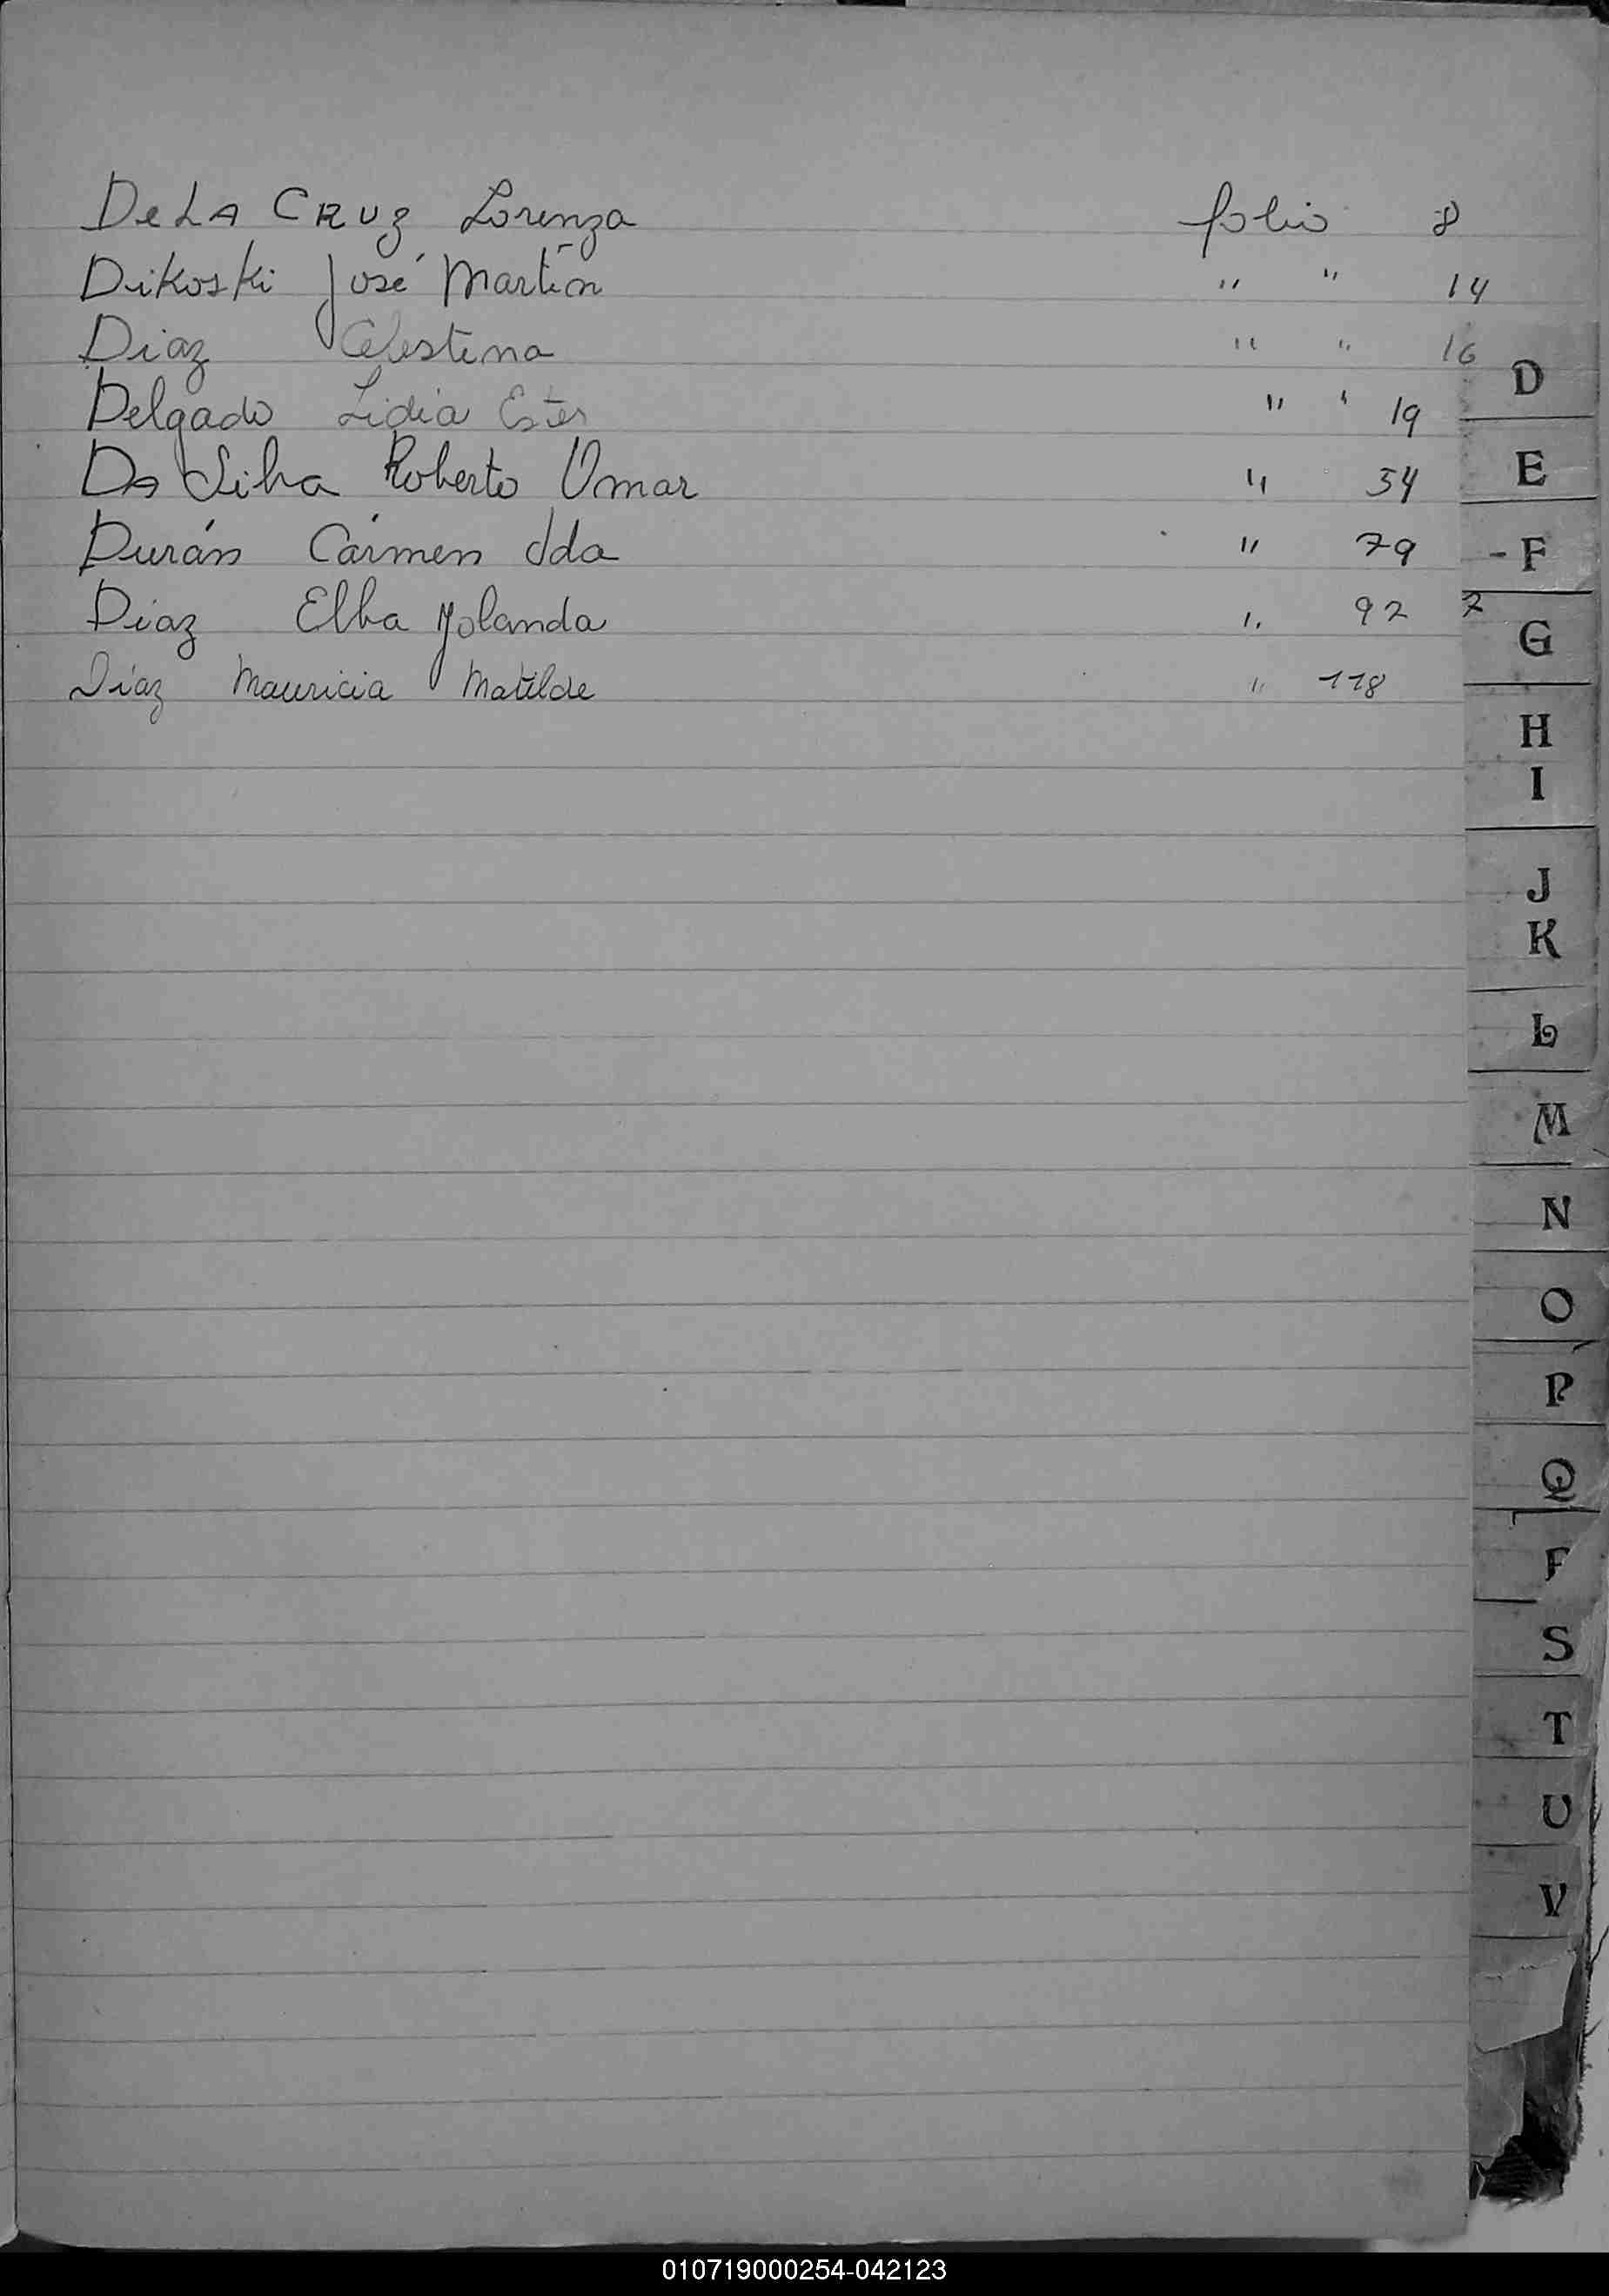 DeLA CRUZ Lorenza folio 8
Dikoski José Martín " " 14
Diaz Celestina " " 16
Delgado Lidia Ester " " 19
Da Silva Roberto Omar " 54
Durán Cármen Ida " 79
Diaz Elba Yolanda " 92
Díaz Mauricia Matilde " 118
D
E
F
G
H
I
J
K
L
M
N
O
P
Q
S
T
U
V
010719000254-042123